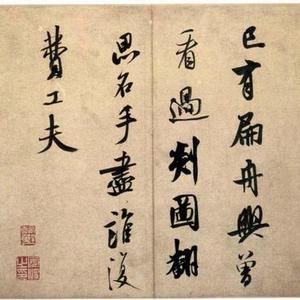 已有扁舟興曾
看過剡圖翻
思名手盡誰復
費工夫